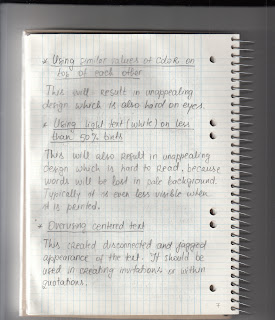 * Using similar values of color on
top of each other
This will result in unappealing
design which is also hard on eyes.
* Using light text (white) on less
than 50% tints
This will also result in unappealing
design which is hard to read, because
words will be lost in pale background.
Typically it is even less visible when
it is printed.
* Overusing centered text
This created disconnected and jagged
appearance of the text. It should be
used in creating invitations or within
quotations.
7